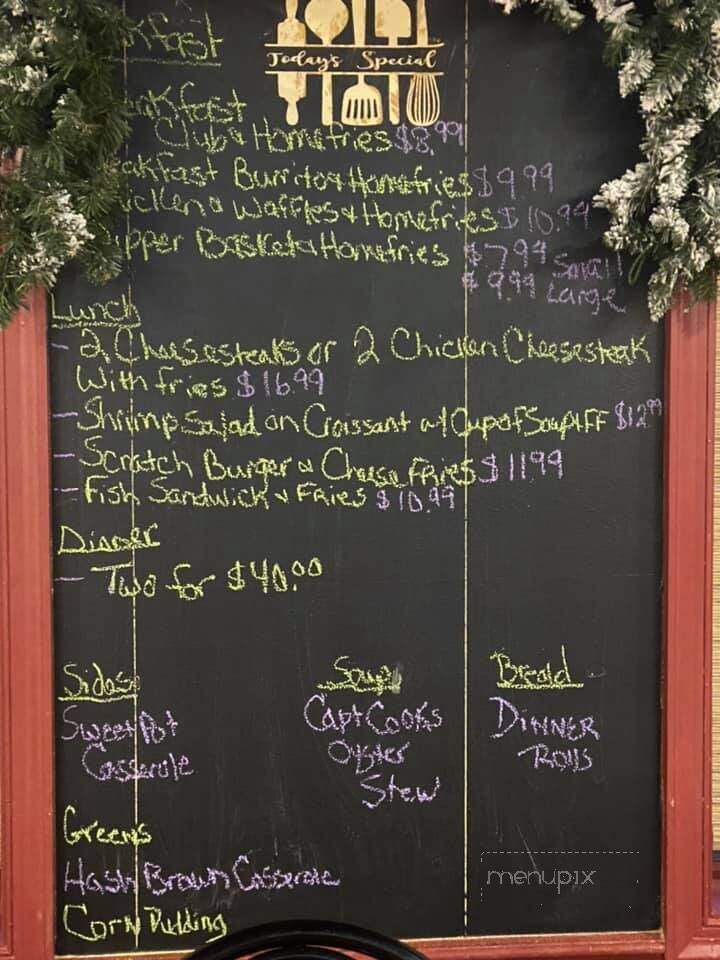 Today's Special
kfast
akfast
Club & Homefries $8.99
akfast Burrito & Homefries $9.99
icken & Waffles & Homefries $10.99
pper Basket & Homefries $7.99 Small
$9.99 Large
Lunch
- 2 Cheesesteaks or 2 Chicken Cheesesteak
With fries $16.99
- Shrimp Salad on Croissant w/ Cup of Soup + FF $12.99
- Scratch Burger & Cheese Fries $11.99
- Fish Sandwich & Fries $10.99
Dinner
- Two for $40.00
Sides Soup Bread
Sweet Pot Capt Cooks Dinner
Casserole Oyster Rolls
Stew
Greens
Hash Brown Casserole
Corn Pudding
menupix